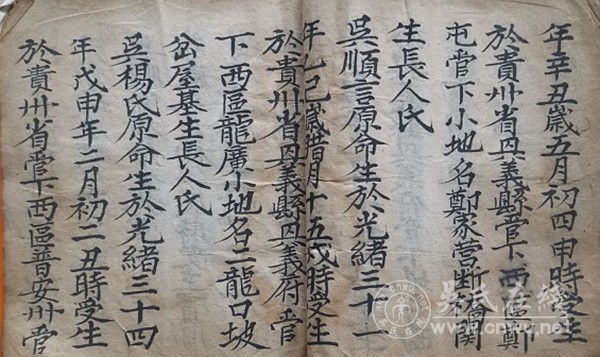 年辛丑歲五月初四申時受生
於貴州省興義縣管下西區鄭
屯营下小地名鄭家营断橋関
生長人氏
吴順言原命生於光緒三十一
年乙巳歲昔月十五戌時受生
於貴州省興義縣興義府管
下西區龍廣小地名二龍口坡
岔屋基生長人氏
吴楊氏原命生於光緒三十四
年戊申年二月初二丑時受生
於貴州省管下西區普安州管
吴氏在线
www.cnwu.net